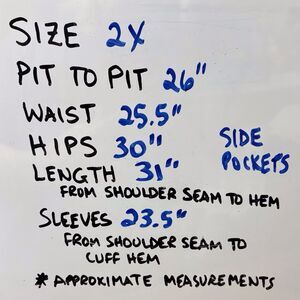 SIZE 2X
PIT TO PIT 26"
WAIST 25.5"
HIPS 30"
SIDE POCKETS
LENGTH 31"
FROM SHOULDER SEAM TO HEM
SLEEVES 23.5"
FROM SHOULDER SEAM TO
CUFF HEM
* APPROXIMATE MEASUREMENTS